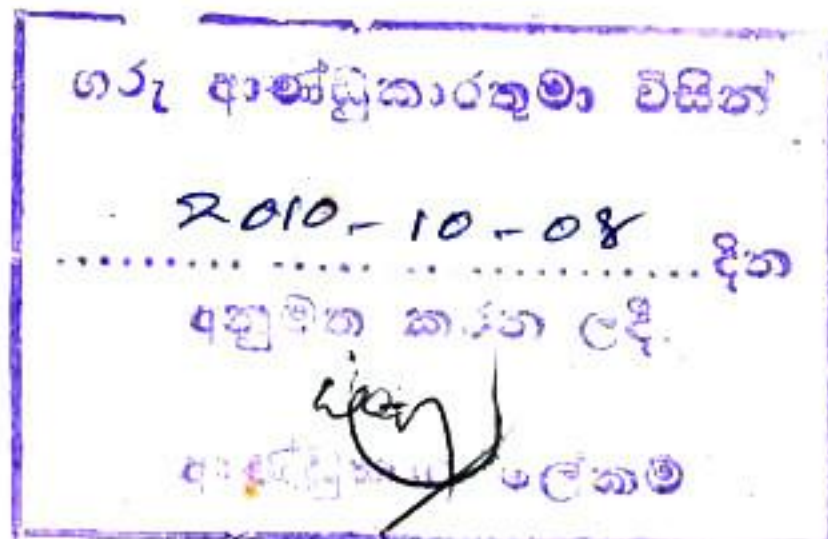 ගරු ආණ්ඩුකාරතුමා විසින්
2010-10-08
.......................... දින
අනුමත කරන ලදී.
ලේකම්